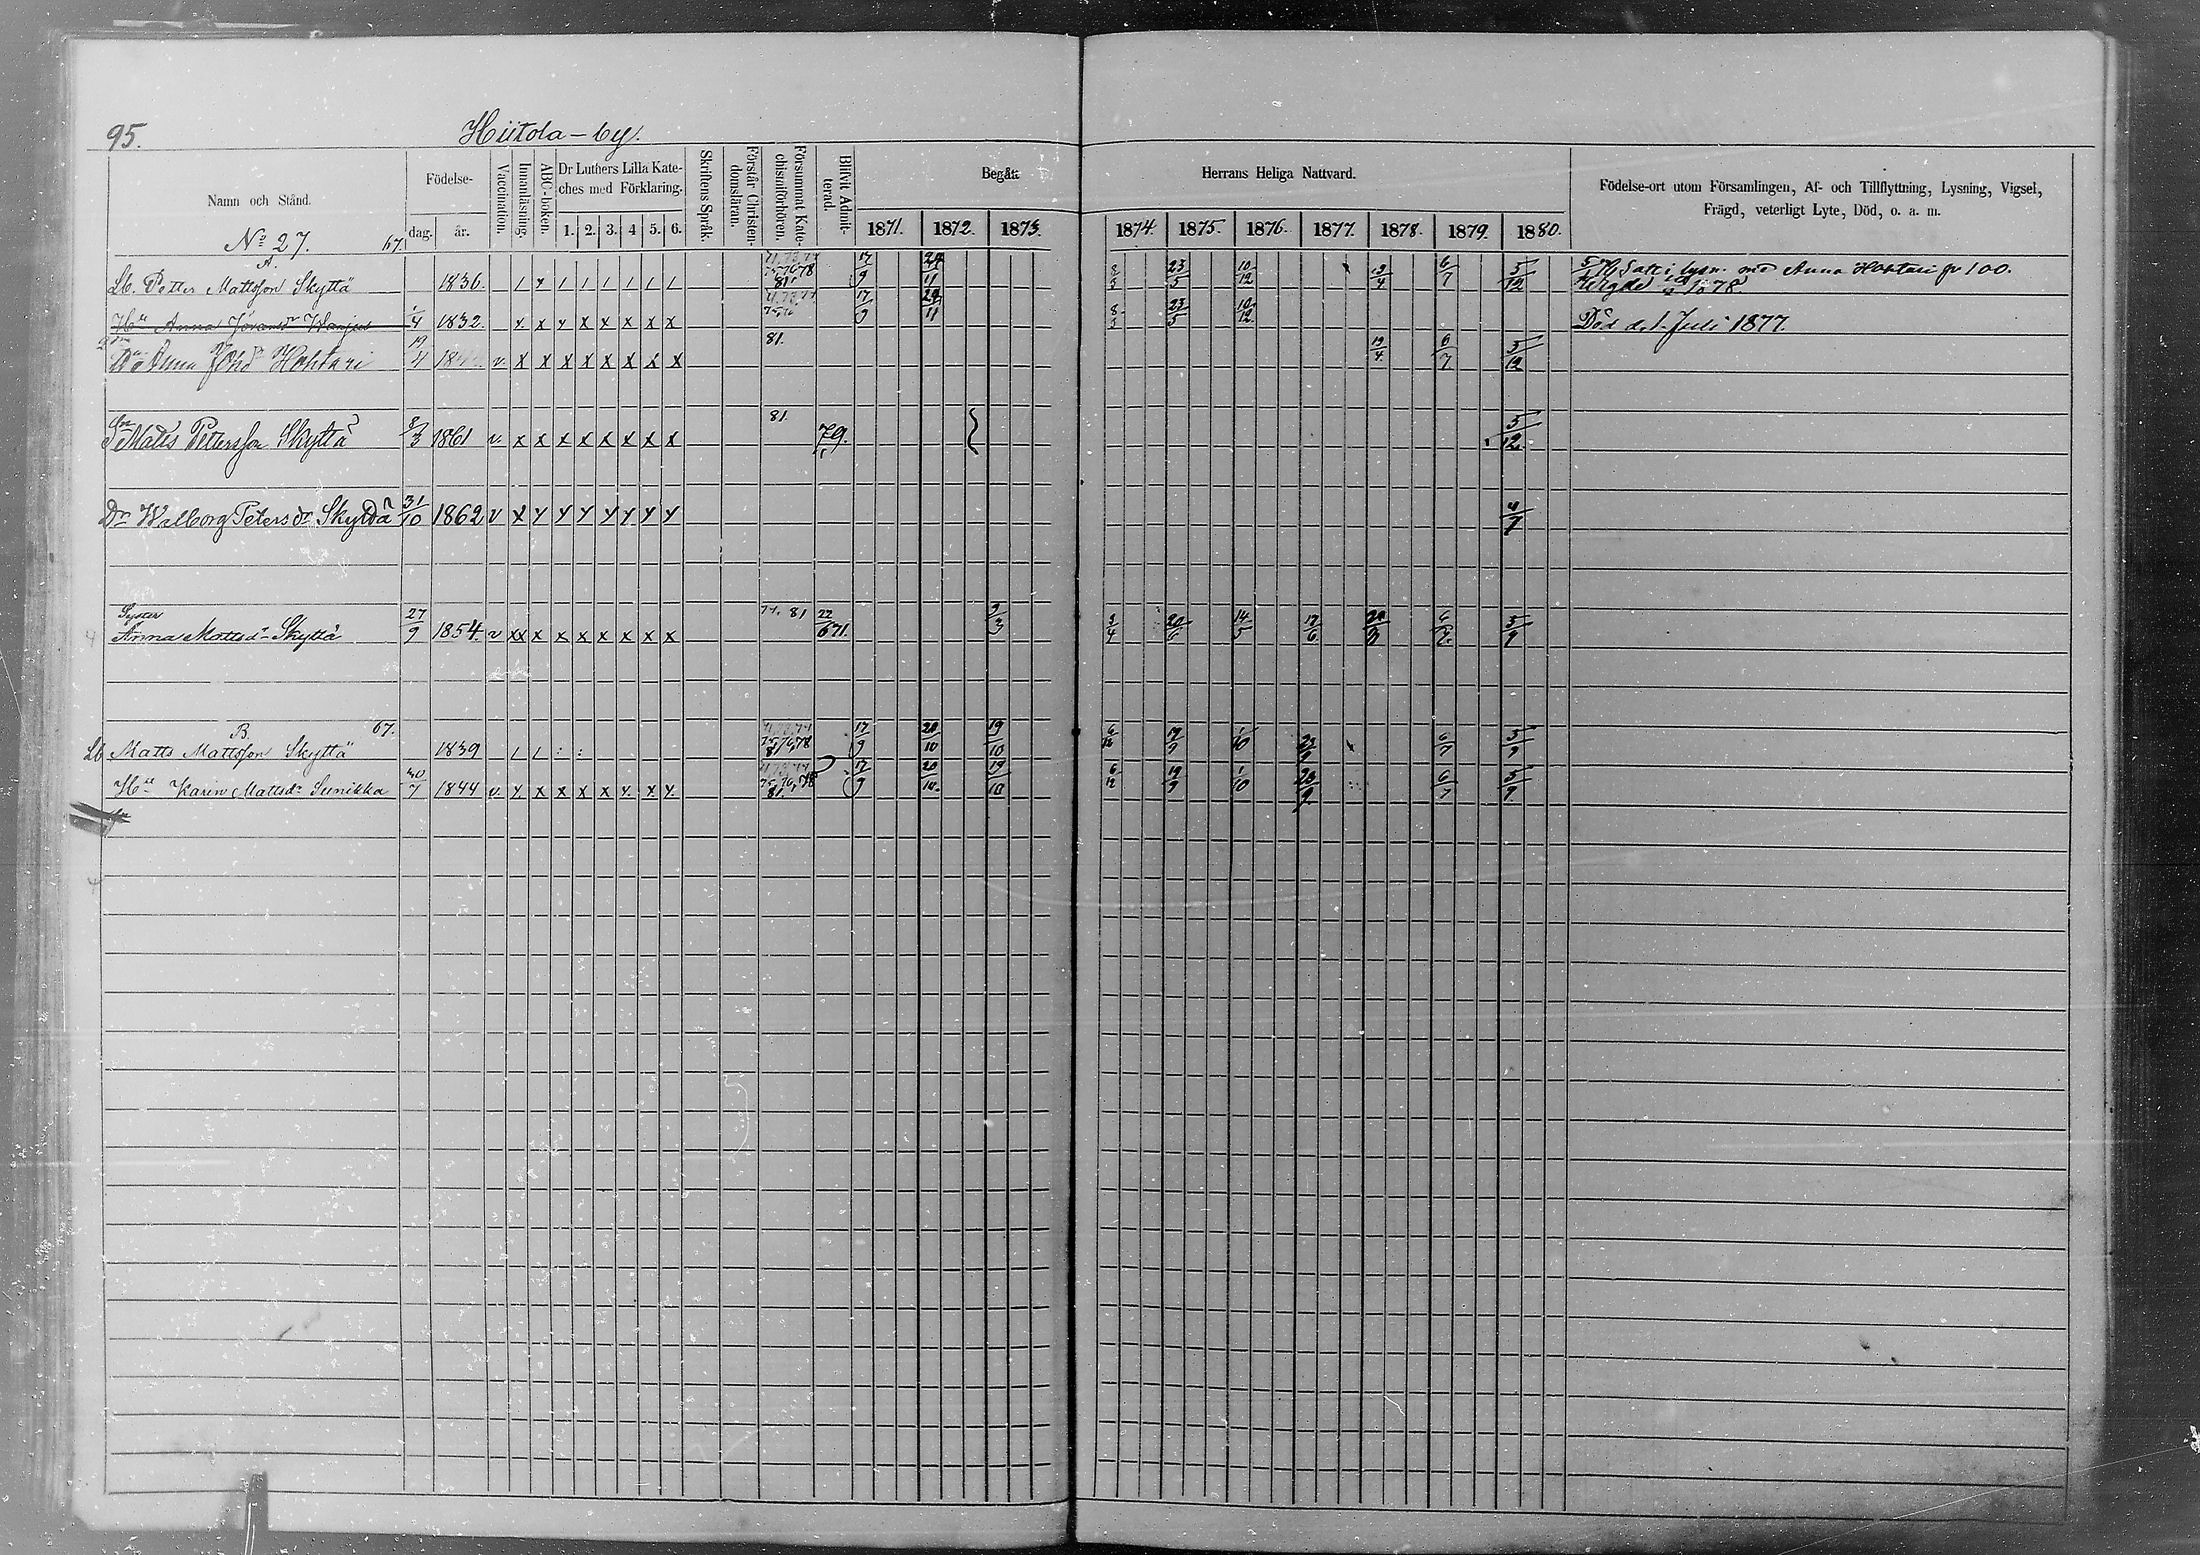 95.
Hiitola-by.
Namn och Stånd.
Födelse-
dag.
år.
Vaccination.
Innanläsning.
ABC-boken.
Dr Luthers Lilla Kate-
ches med Förklaring.
1. 2. 3. 4 5. 6.
Skriftens Språk.
Förstår Christen-
domsläran.
Försummat Kate-
chismiförhören.
Blifvit Admit-
terad.
Begått
1871. 1872. 1873.
Herrans Heliga Nattvard.
1874. 1875. 1876. 1877. 1878. 1879. 1880.
Födelse-ort utom Församlingen, Af- och Tillflyttning, Lysning, Vigsel,
Frägd, veterligt Lyte, Död, o. a. m.
No 27. 67.
A.
Lb. Petter Mattsson Skyttä 1836. / x / / / / / / 81. 17/9 11 23/5 10/12 6/7 5/12 lysn. med Anna Hohtari fr 100.
1878.
Hu Anna 1/4 1832. x x x x x x x x 17/9 11 8/3 23/5 10/12 Död d. 1. Juli 1877.
Anna Hohtari 19/4 v x x x x x x x x 81. 19/4 6/7 5/12
Sn Matts Pettersson Skyttä 8/3 1861 v. x x x x x x x x 81. 79. 5/12
Dr Walborg Petersdr Skyttä 31/10 1862 v x y y y y y y y 4/7
Syster
Anna Mattsdr Skyttä 27/9 1854. v xx x x x x x x x 81 22/6 71. 3/4 20/6 14/5 17/6 5/9
B. 67.
Lb Matts Mattsson Skyttä 1839 / / : : 17/9 20/10 19/10 6/12 19/9 1/10 6/7 5/9
Hu Karin Mattsdr Sunikka 30/7 1844 v. x x x x x x x x 81. 17/9 20/10. 19/10 6/12 19/9 1/10 23/9 6/7 5/9.